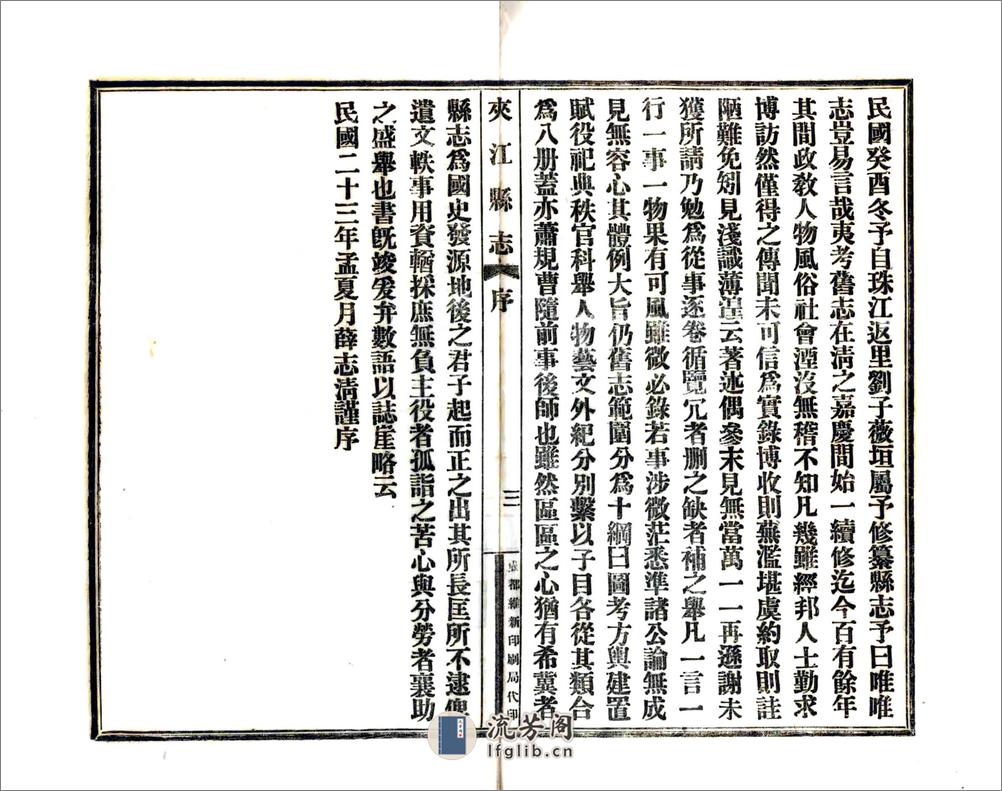 民國癸酉冬予自珠江返里劉子薇垣屬予修纂縣志予曰唯唯
志豈易言哉夷考舊志在淸之嘉慶間始一續修迄今百有餘年
其間政敎人物風俗社會湮沒無稽不知凡幾雖經邦人士勤求
博訪然僅得之傳聞未可信爲實錄博收則蕪濫堪虞約取則詿
陋難免矧見淺識薄遑云著述偶參末見無當萬一一再遜謝未
獲所請乃勉爲從事逐卷循覽冗者删之缺者補之舉凡一言一
行一事一物果有可風雖微必錄若事涉微茫悉準諸公論無成
見無容心其體例大旨仍舊志範圍分爲十綱曰圖考方輿建置
賦役祀典秩官科舉人物藝文外紀分別繫以子目各從其類合
爲八册蓋亦蕭規曹隨前事後師也雖然區區之心猶有希冀者
夾江縣志 序 三 成都維新印刷局代印
縣志爲國史發源地後之君子起而正之出其所長匡所不逮俾
遺文軼事用資輶採庶無負主役者孤詣之苦心與分勞者襄助
之盛舉也書旣竣爰弁數語以誌崖略云
民國二十三年孟夏月薛志淸謹序
流芳阁
lfglib.cn